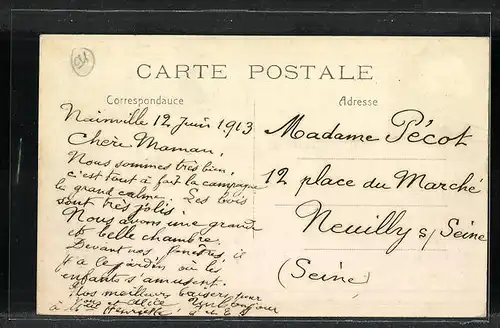 CARTE POSTALE
Correspondance
Adresse
Nainville 12 Juin 1913
Chère Maman,
Nous sommes très bien,
c'est tout à fait la campagne
le grand calme. Les bois
sont très jolis.
Nous avons une grande
et belle chambre.
Devant nos fenêtres, il
y a le jardin où les
enfants s'amusent.
Nos meilleurs baisers pour
et Alice
à M. Henriette
Madame Pécot
12 place du Marché
Neuilly s/ Seine
(Seine)